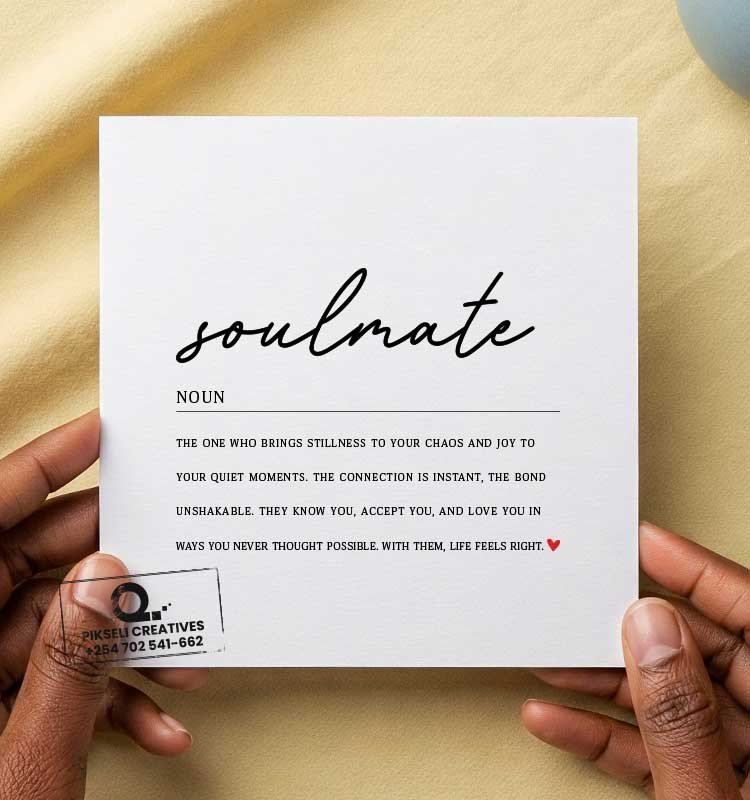 soulmate
NOUN
THE ONE WHO BRINGS STILLNESS TO YOUR CHAOS AND JOY TO
YOUR QUIET MOMENTS. THE CONNECTION IS INSTANT, THE BOND
UNSHAKABLE. THEY KNOW YOU, ACCEPT YOU, AND LOVE YOU IN
WAYS YOU NEVER THOUGHT POSSIBLE. WITH THEM, LIFE FEELS RIGHT. ❤
PIKSELI CREATIVES
+254 702 541-662